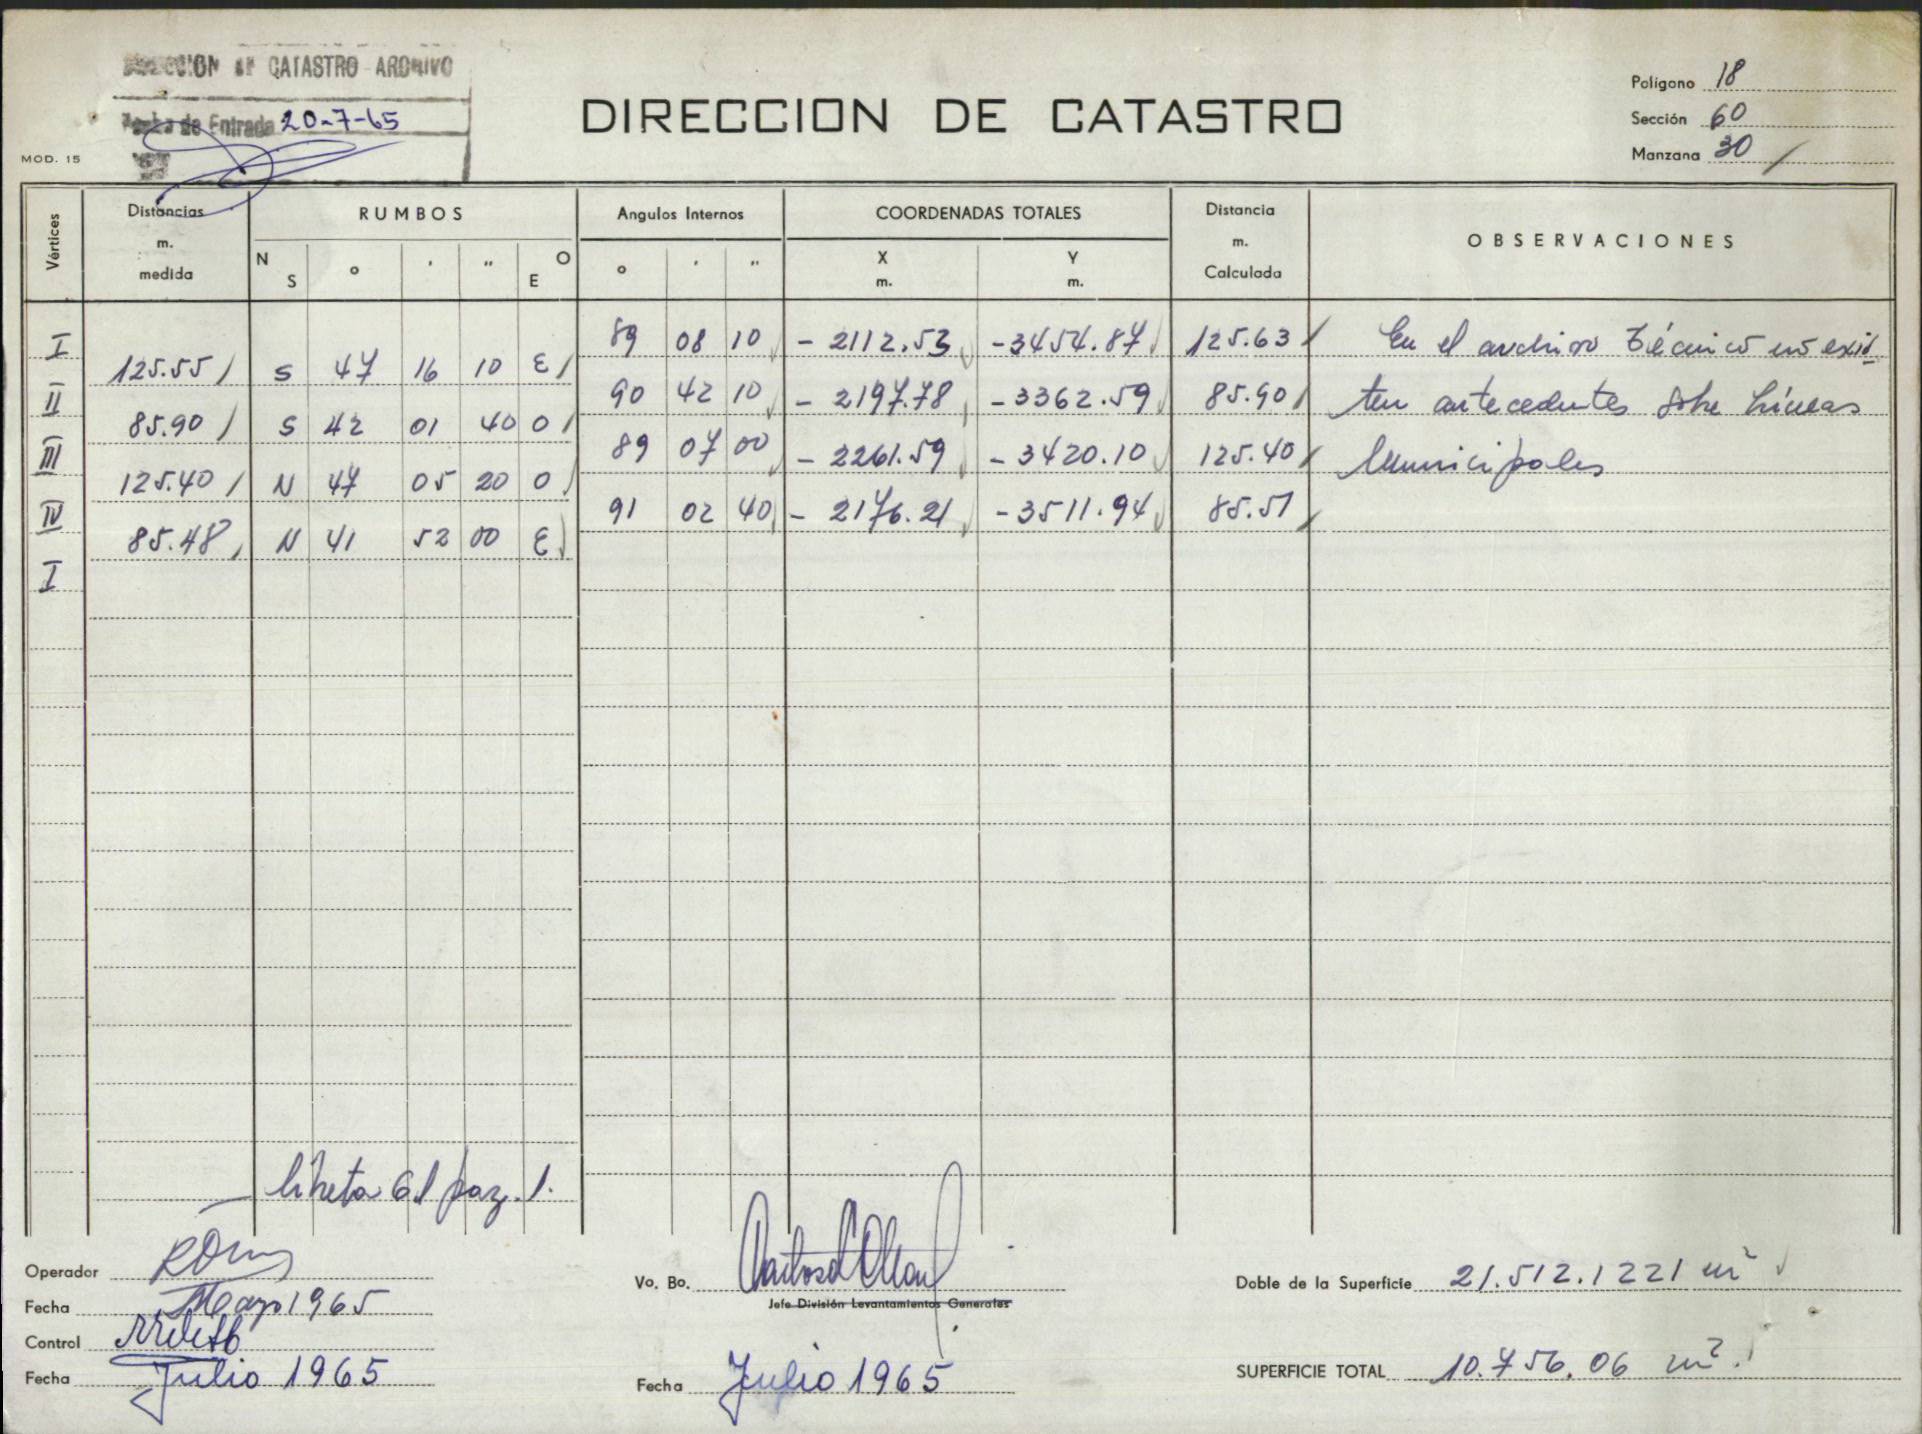 DIRECCION DE CATASTRO ARCHIVO
Fecha de Entrada 20-7-65
MOD. 15
DIRECCION DE CATASTRO
Polígono 18
Sección 60
Manzana 30
Vértices
Distancias m. medida
RUMBOS
N S ° ' " O E
Angulos Internos
° ' "
COORDENADAS TOTALES
X m. Y m.
Distancia m. Calculada
OBSERVACIONES
I 89 08 10 - 2112.53 -3454.87 125.63 En el archivo técnico no exis-
125.55 S 47 16 10 E
II 90 42 10 - 2197.78 -3362.59 85.90 ten antecedentes sobre Líneas
85.90 S 42 01 40 O
III 89 07 00 - 2261.59 -3420.10 125.40 Municipales
125.40 N 47 05 20 O
IV 91 02 40 - 2176.21 -3511.94 85.51
85.48 N 41 52 00 E
I
libreta 61 pag. 1.
Operador
Fecha Mayo 1965
Control
Fecha Julio 1965
Vo. Bo.
Jefe División Levantamientos Generales
Fecha Julio 1965
Doble de la Superficie 21.512.1221 m²
SUPERFICIE TOTAL 10.756.06 m².